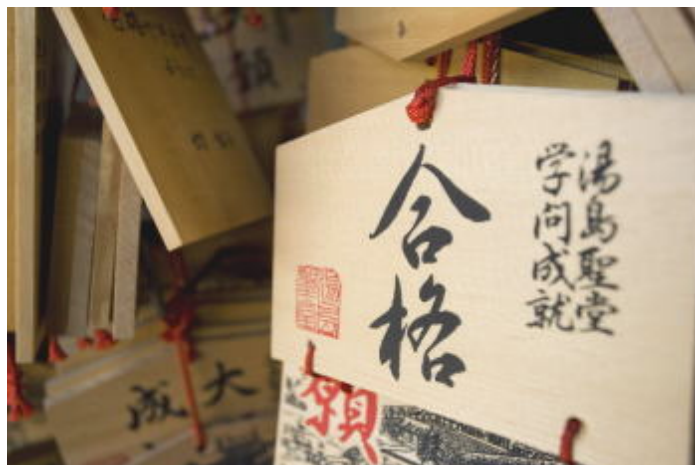 湯島聖堂
学問成就
合格
願
大
成
願